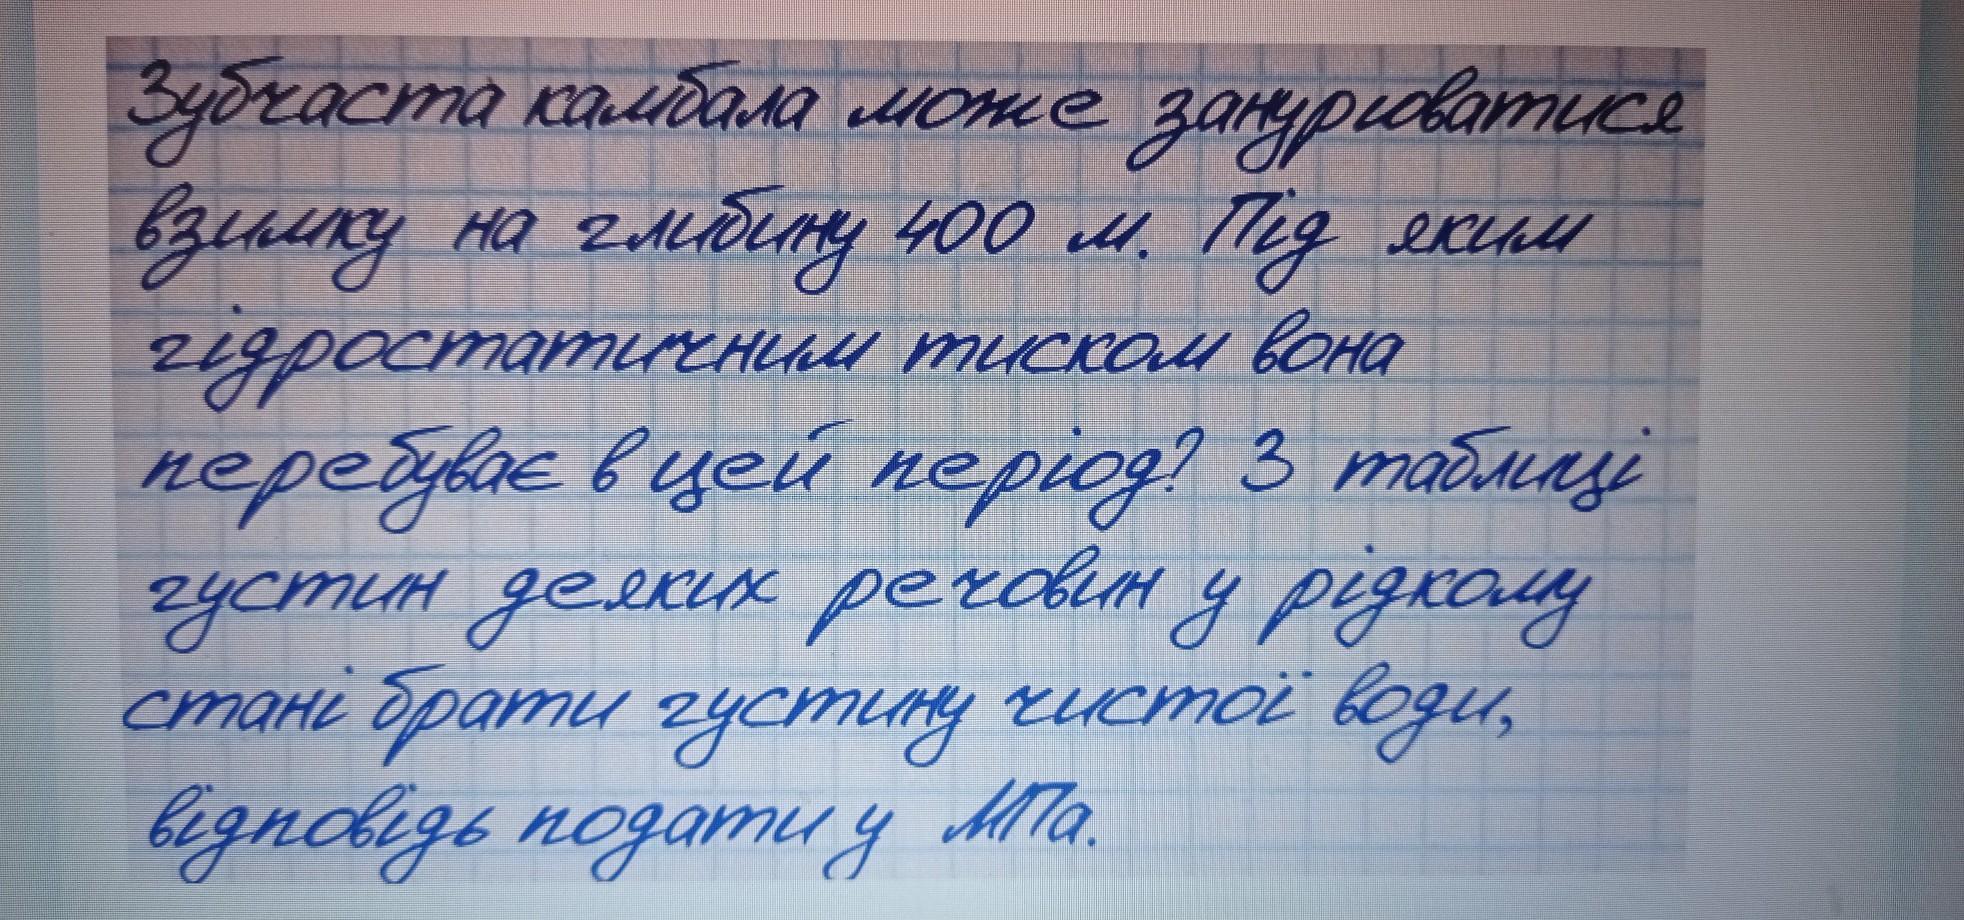 Зубчаста камбала може занурюватися
взимку на глибину 400 м. Під яким
гідростатичним тиском вона
перебуває в цей період? З таблиці
густин деяких речовин у рідкому
стані брати густину чистої води,
відповідь подати у МПа.